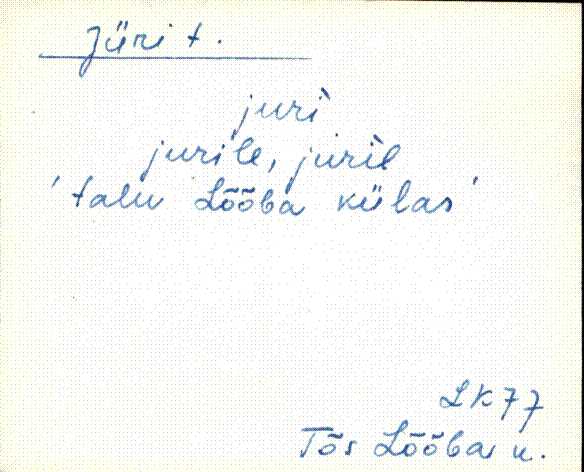 Jüri t.
jurì
jurile, jurìl
'talu Lõõba külas'
LK77
Tõs Lõõba u.